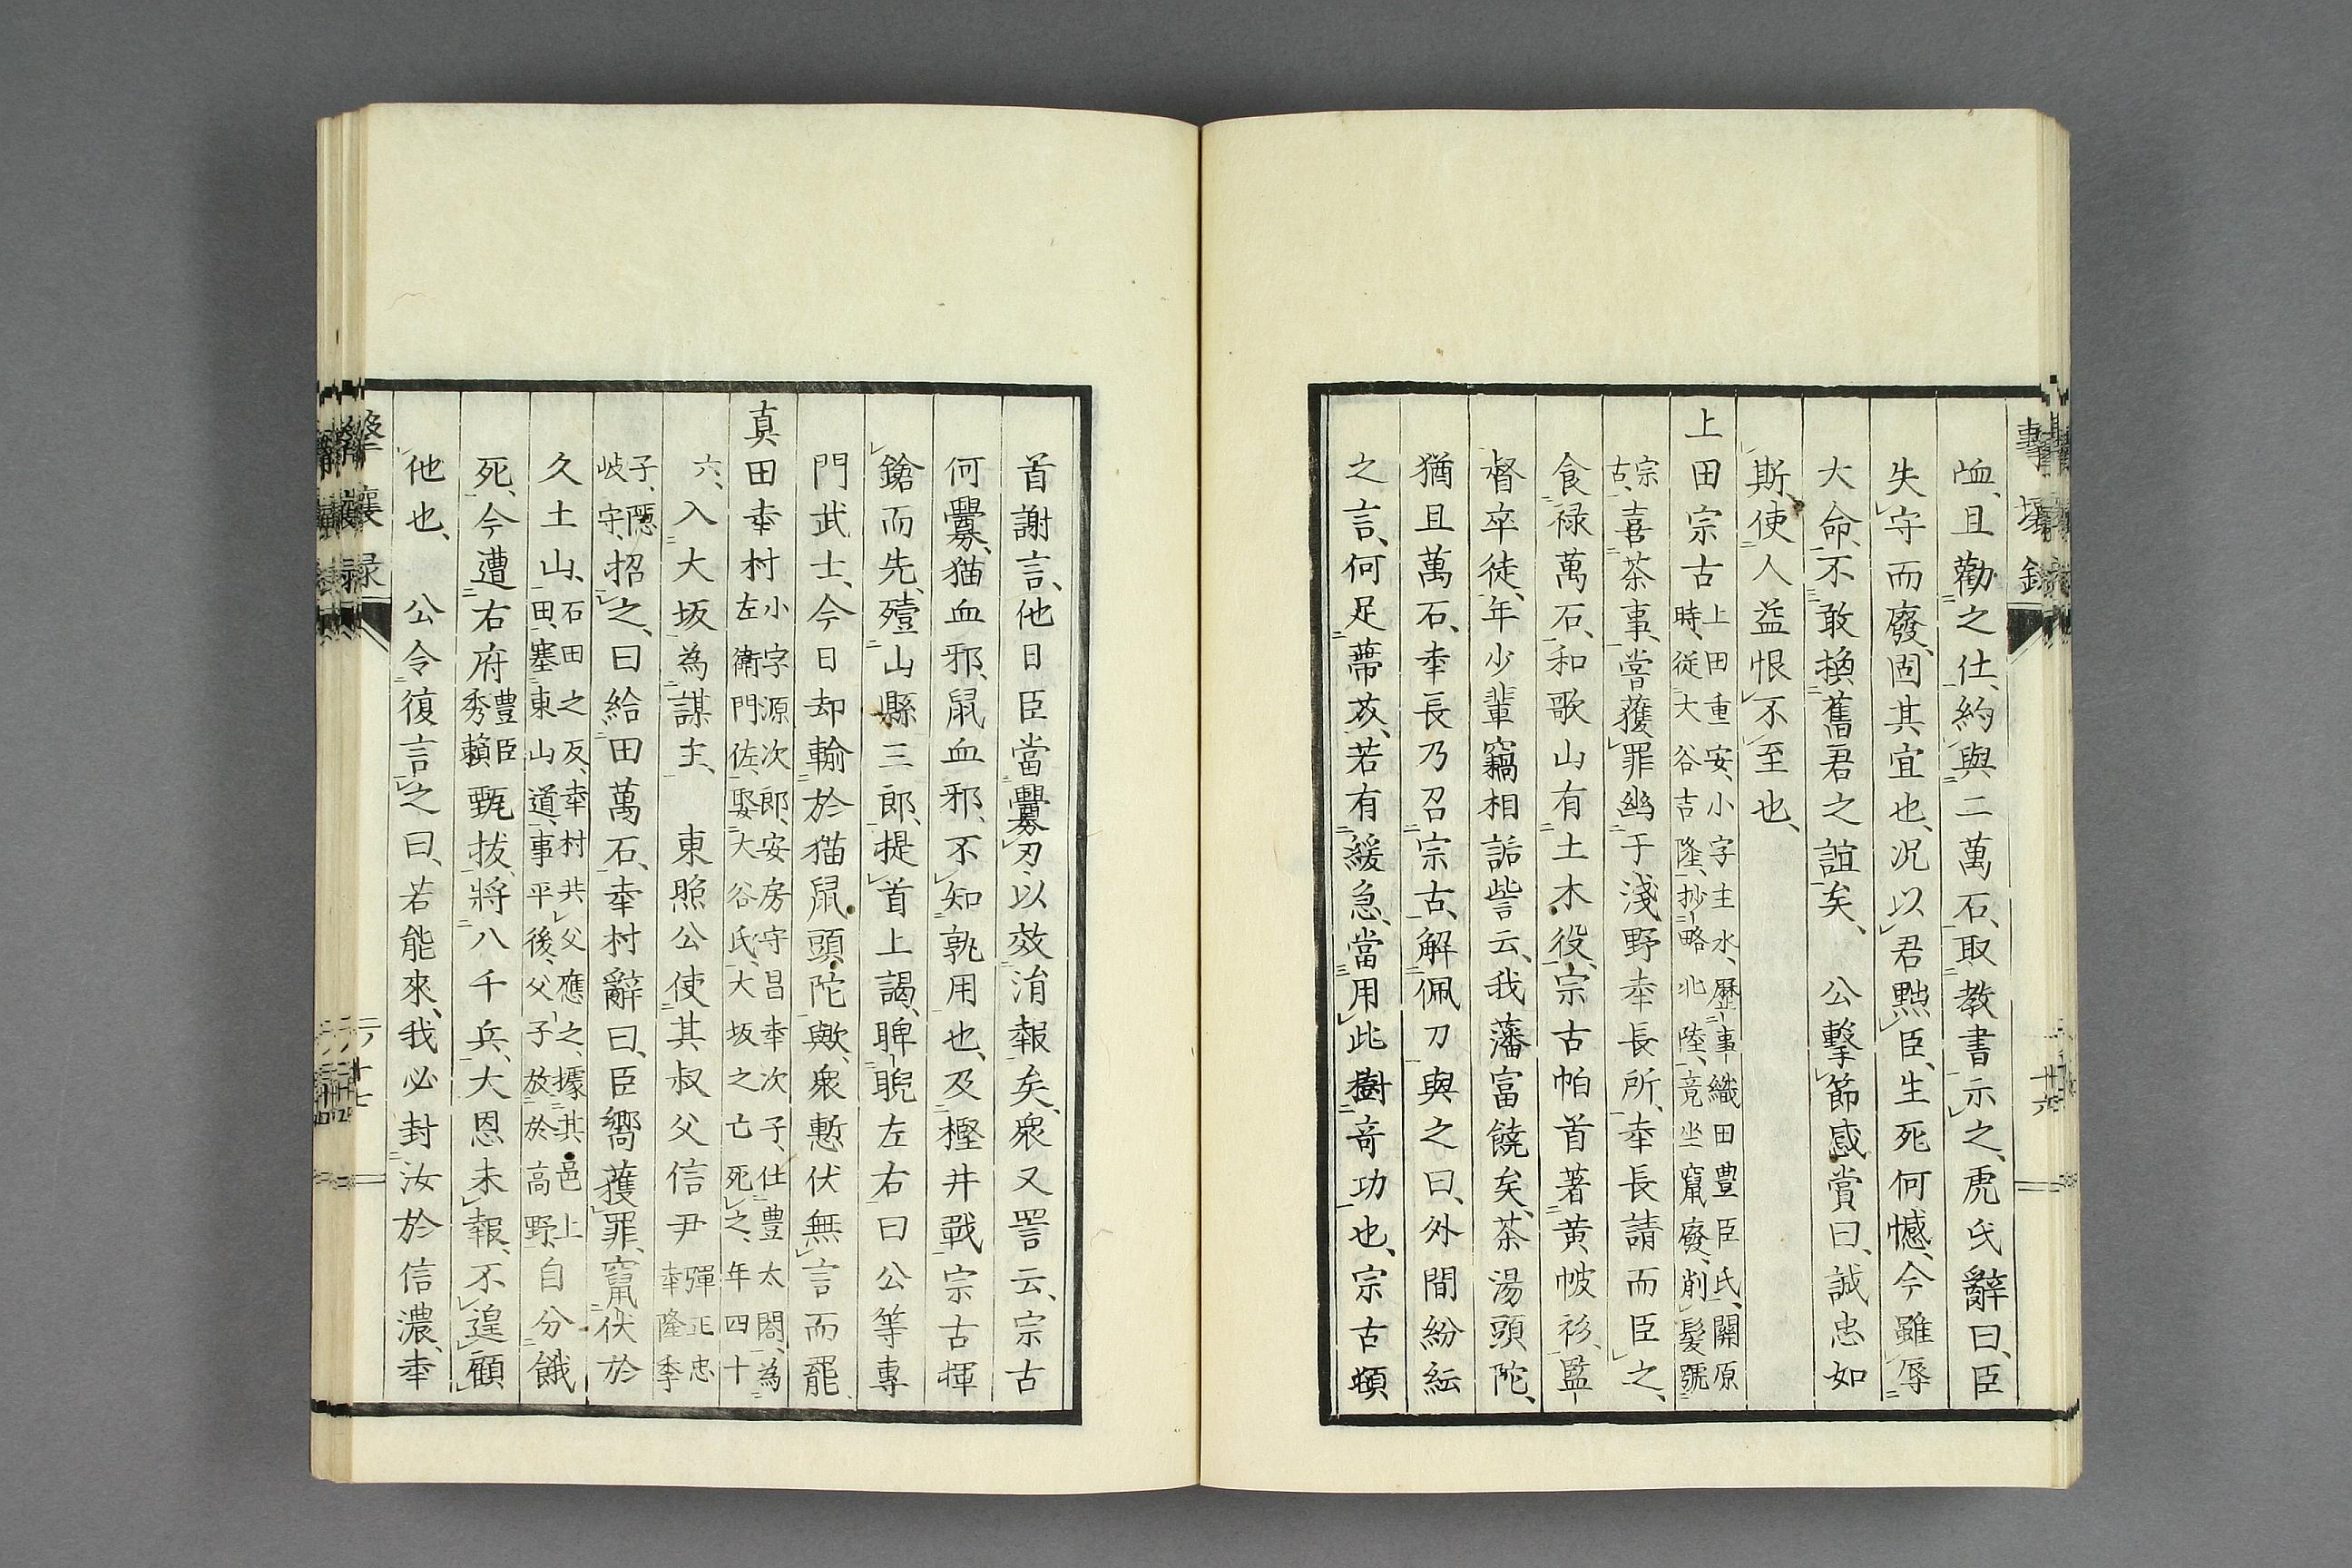 衁、且勸之仕、約與二萬石、取教書示之、虎氏辭曰、臣
失守而廢、固其宜也、况以君點臣、生死何憾、今雖辱
大命、不敢換舊君之誼矣、　公擊節感賞曰、誠忠如
斯、使人益恨不至也、
上田宗古上田重安、小字主水、歷事織田豊臣氏、關原時、従大谷吉隆、抄略北陸、竟坐竄廢、削髮號
宗古、喜茶事、嘗獲罪幽于淺野幸長所、幸長請而臣之、
食禄萬石、和歌山有土木役、宗古帕首著黄帔衫、監
督卒徒、年少輩竊相詬訾云、我藩富饒矣、茶湯頭陀、
猶且萬石、幸長乃召宗古、解佩刀與之曰、外間紛紜
之言、何足蔕芥、若有緩急、當用此樹竒功也、宗古頓
首謝言、他日臣當釁刃以效涓報矣、衆又詈云、宗古
何釁、猫血邪、鼠血邪、不知孰用也、及樫井戰、宗古揮
鎗而先、殪山縣三郎、提首上謁、睥睨左右曰公等專
門武士、今日却輸於猫鼠頭陀歟、衆慙伏無言而罷
真田幸村小字源次郎、安房守昌幸次子、仕豊太閤、為左衛門佐、娶大谷氏、大坂之亡死之、年四十
六、入大坂為謀主、　東照公使其叔父信尹彈正忠幸隆季
子、隱岐守、招之、曰給田萬石、幸村辭曰、臣嚮獲罪、竄伏於
久土山、石田之反、幸村共父應之、據其邑上田、塞東山道、事平後、父子放於高野、自分餓
死、今遭右府豊臣秀頼甄拔、將八千兵、大恩未報、不遑顧
他也、　公令復言之曰、若能來、我必封汝於信濃、幸
十六
十七